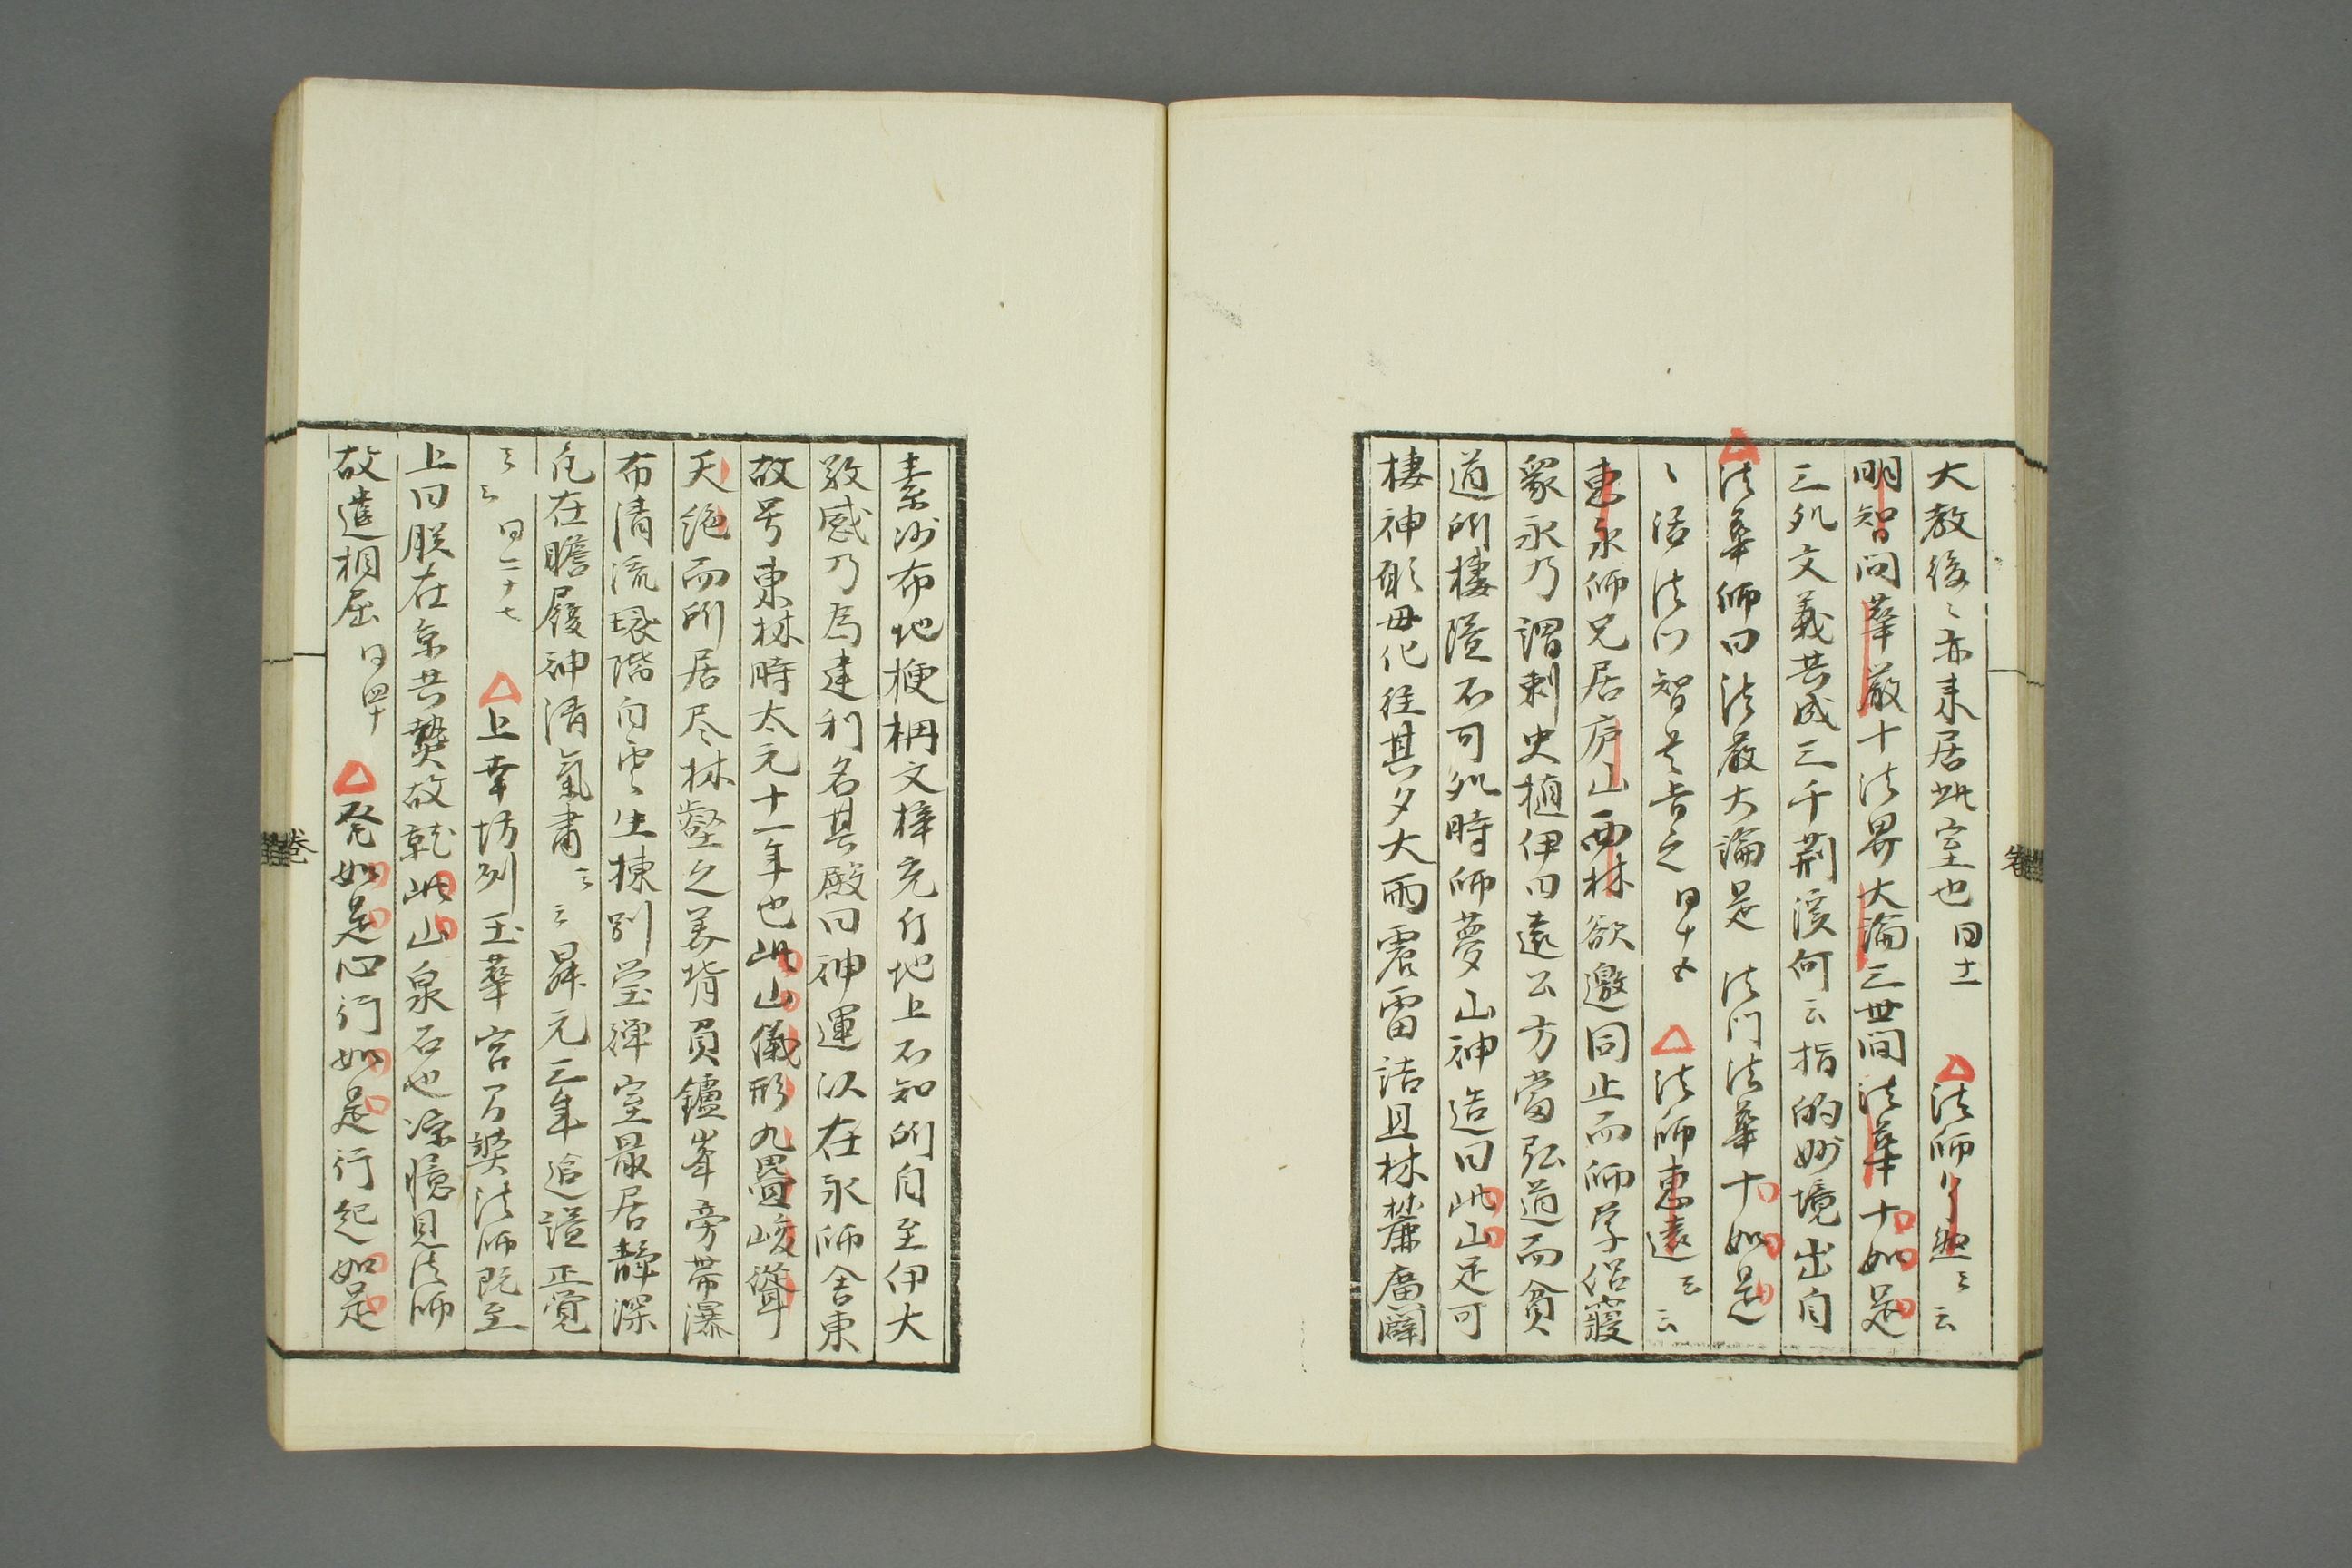 大教後〻亦来居此室也 同十一 △法師了然云云
明智問華厳十法界大論三世間法華十如是
三処文義共成三千荆渓何云指的妙境出自
△法華師曰法厳大論是 法門法華十如是
〻活法門智是㫖之 同十五 △法師恵遠云云
恵永師兄居庐山西林欲邀同止而師学侣寖
衆永乃謂刺史桓伊曰遠公方當弘道而貧
道所棲隘不可処時師夢山神造曰此山足可
棲神願毋他往其夕大雨震雷詰旦林麓廣闢
素沙布地楩柟文梓充仞地上不知所自至伊大
敬感乃為建刹名其殿曰神運以在永師舎東
故号東林時太元十一年也此山儀形九疊峻聳
天絶而所居尽林壑之美背負鑪峯旁帯瀑
布清流環階白雲生棟別営禅室最居静深
凢在瞻履神清氣肅云云昇元三年追謚正覚
云云 同二十七 △上幸坊列玉華宮乃奘法師既至
上曰朕在京共贊故就此山泉石也涼憶見法師
故遣相屈 同四十 △発如是心行如是行起如是
巻
巻